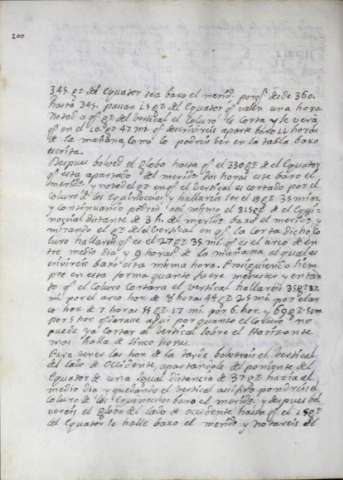 200
345. gz. del Equator sea baxo el merid. porq. desde 360.
hasta 345. pasan 15 gz. del Equator q. valen una hora
del vertical el Coluro le corta y se vera
q. en el 10. gz. 47. mi. q. escriviréis aparte baxo 11 horas
de la mañana, como lo podréis ver en la tabla baxo
escrita.
Despues bolved el globo hasta q. el 330 gz. de el Equator
q. esta apartado del merid. dos horas este baxo el
merid. y noted el gz. en q. el vertical es cortado por el
coluro de los equinoccios y hallaréis ser el 19 gz. 35 min.
y continuando poned assi mismo el 315 gz. de el Equi
noctial distante de 3 h. del merid. baxo el merid. y
mirando el gz. del vertical en q. le corta dicho Co
luro hallaréis q. es el 27 gz. 35 mi. q. es el arco de en
tre medio dia y 9 horas de la mañana el qual e
scriviréis baxo esta misma hora. Prosiguiendo siem
pre en esta forma quanto fuere menester y entan
to q. el coluro cortara el vertical hallaréis 35 gz. 32
mi. por el arco hor. de 8 horas 44 gz. 25 mi. por el ar
co hor. de 7 horas 55 gz. 17 mi. por 6 hor. y 69 gz.
por 5 hor. y parareis aqui por quanto el coluro no
puede ya cortar al vertical sobre el Horizonte
mas halla de cinco horas.
Para tener las hor. de la tarde bolveréis el vertical
del lado de Occidente, apartandole del poniente del
Equator de una igual distancia de 37 gz. hazia el
medio dia y quedando el vertical assi fixo pondréis el
coluro de los equinoccios baxo el merid. y despues bol
veréis el globo del lado de occidente hasta q. el 15 gz.
del Equator se halle baxo el merid. y notaréis el